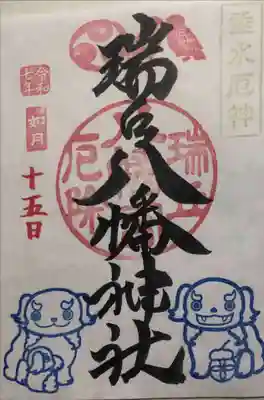 垂水厄神
瑞丘八幡神社
瑞丘
厄除
令和
七年
如月
十五日